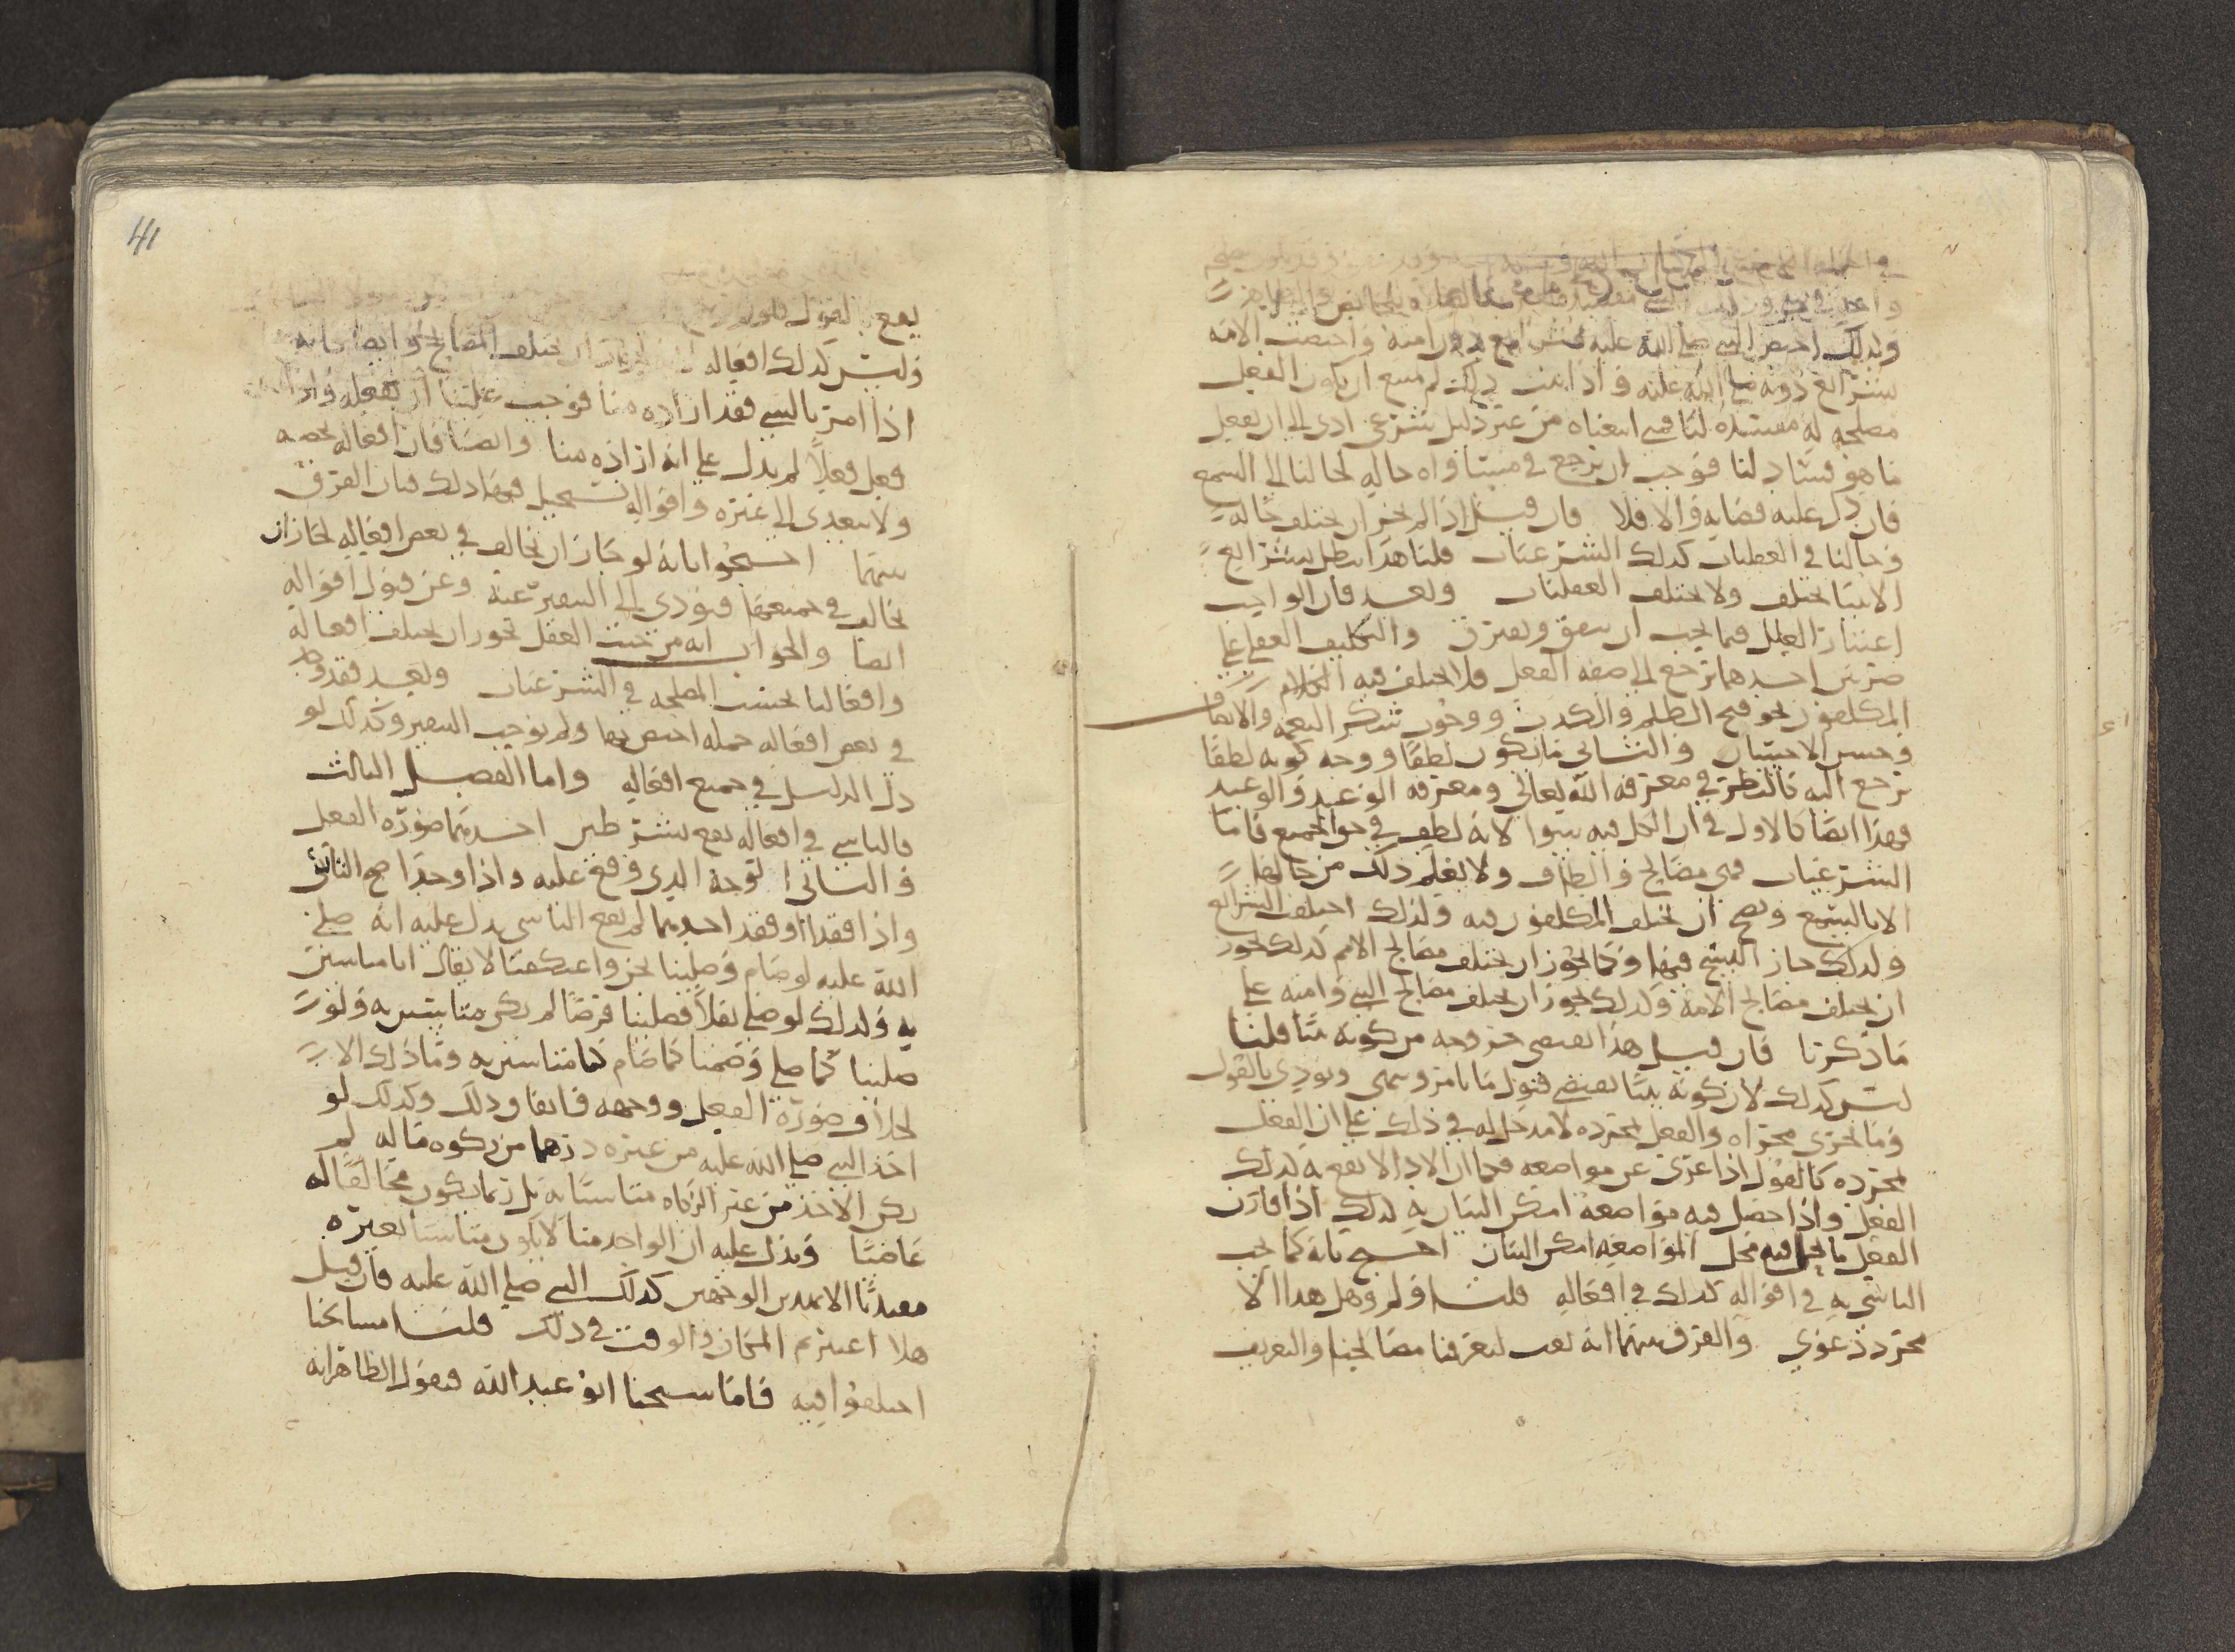 ولذلك اختص النبي صلى الله عليه بشرائع دون امته واختصت الامه
بشرائع دونه صلى الله عليه واذا ثبت ذلك لم يمنع ان يكون الفعل
مصلحه له مفسده لنا فمتى اتبعناه من غير دليل شرعي ادى الى ان نفعل
ما هو فساد لنا فوجب ان يرجع في مساواه حاله لحالنا الى السمع
فان دل عليه قضا به والا فلا فان قيل اذا لم يجز ان يختلف حاله
وحالنا في العقليات كذلك الشرعيات قلنا هذا يبطل بشرائع
الانبيا تختلف ولا تختلف العقليات وبعد فان الواجب
اعتبار العلل فيما يجب ان يتفق ويفترق والتكليف العقلي على
ضربين احدهما يرجع الى صفه الفعل فلا يختلف فيه
المكلفون نحو قبح الظلم والكذب ووجوب شكر النعمه والانصاف
وحسن الاحسان والثاني ما يكون لطفا ووجه كونه لطفا
يرجع اليه كالنظر في معرفه الله تعالى ومعرفه الوعد والوعيد
فهذا ايضا كالاول في ان الكل فيه سوا لانه لطف في حق الجميع فاما
الشرعيات فهي مصالح والطاف ولا يعلم ذلك من حالها
الا بالسمع ويصح ان يختلف المكلفون فيه ولذلك اختلف الشرائع
ولذلك جاز النسخ فيها وكما يجوز ان يختلف مصالح الامم كذلك يجوز
ان يختلف مصالح الامه وكذلك يجوز ان يختلف مصالح النبي وامته على
ما ذكرنا فان قيل هذا يقتضي خروجه من كونه نبيا قلنا
ليس كذلك لان كونه نبيا يقتضي قبول ما يامر وينهى ويودي بالقول
وما يجري مجراه والفعل بمجرده لا مدخل له في ذلك على ان الفعل
بمجرده كالقول اذا عري عن مواضعه فكما ان الادا لا يقع به كذلك
الفعل واذا حصل فيه مواضعه امكن البيان به كذلك اذا قارن
الفعل ما يحل فيه محل المواضعه امكن البيان احتج بانه كما يجب
التاسي به في اقواله كذلك في افعاله قلنا ولم وهل هذا الا
مجرد دعوى والفرق بينهما انه بعث ليعرفنا مصالحنا والتعريف
41
يقع بالقول
وليس كذلك افعاله ان يختلف المصالح وايضا فانه
اذا امر بالشي فقد اراده منا فوجب علينا ان نفعله واذا
فعل فعلا لم يدل على انه اراده منا وايضا فان افعاله تخصه
ولا يتعدى الى غيره واقواله تستحيل فيها ذلك فبان الفرق
بينهما احتجوا بانه لو جاز ان يخالف في بعض افعاله لجاز ان
يخالف في جميعها فيودي الى التنفير عنه وعن قبول اقواله
ايضا والجواب انه من حيث العقل يجوز ان يختلف افعاله
وافعالنا بحسب المصلحه في الشرعيات وبعد فقد وجد
في بعض افعاله جمله اختص بها ولم يوجب التنفير وكذلك لو
دل الدليل في جميع افعاله واما الفصل الثالث
فالتاسي في افعاله يقع بشرطين احدهما صوره الفعل
والثاني الوجه الذي وقع عليه واذا وجدا صح التاسي
واذا فقدا او فقد احدهما لم يقع التاسي يدل عليه انه صلى
الله عليه لو صام وصلينا نحن واعتكفنا لا يقال انا متاسين
به وكذلك لو صلى نفلا فصلينا فرضا لم يكن متاسين به ولو
صلينا كما صلى وصمنا كما صام كنا متاسين به وما ذلك الا
لاتفاق صوره الفعل ووجهه فاتفاق ذلك وكذلك لو
اخذ النبي صلى الله عليه من غيره درهما من زكوه ماله لم
يكن الاخذ من غير الزكاه متاسيا به بل ربما يكون مخالفا له
عاصيا ويدل عليه ان الواحد منا لا يكون متاسيا بغيره
مقتديا الا بهذين الوجهين كذلك النبي صلى الله عليه فان قيل
هلا اعتبرتم المكان والوقت في ذلك قلنا مشايخنا
اختلفوا فيه فاما شيخنا ابو عبد الله فيقول الظاهر انه